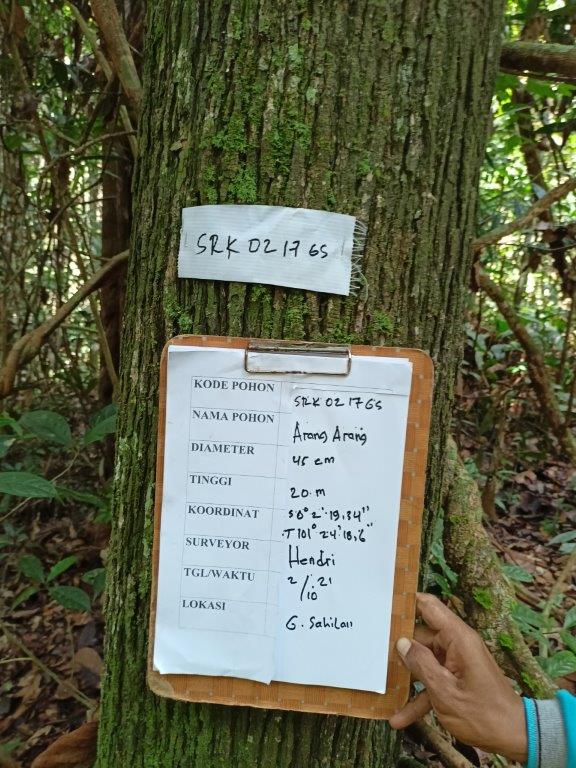 SRK 02 17 GS
KODE POHON SRK 02 17 GS
NAMA POHON Arang Arang
DIAMETER 45 cm
TINGGI 20 m
KOORDINAT S 0° 2' 19,34"
T 101° 24' 18,6"
SURVEYOR Hendri
TGL/WAKTU 2/10 21
LOKASI G. Sahilan